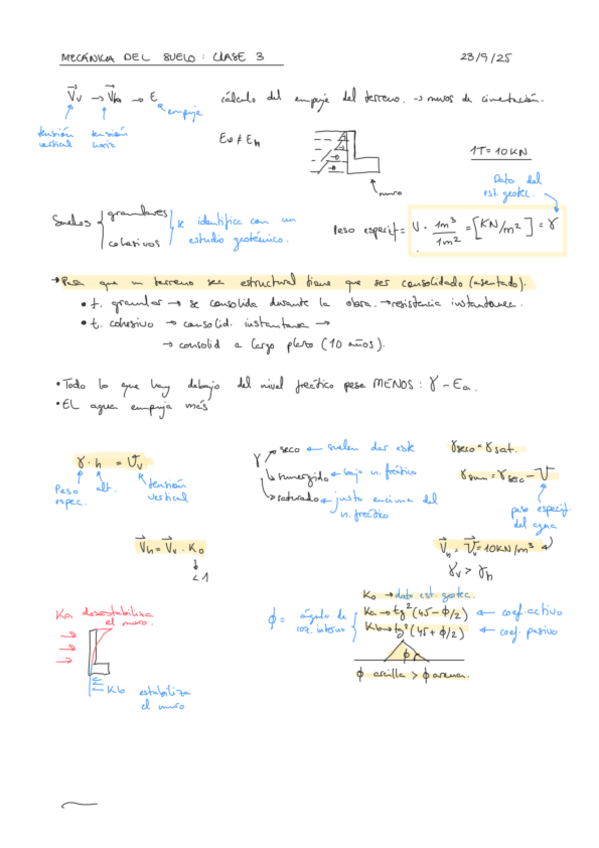 MECÁNICA DEL SUELO: CLASE 3 23/9/25
V⃗v → V⃗h → E cálculo del empuje del terreno. → muros de cimentación.
empuje
tensión vertical tensión horiz
Ev ≠ Eh
1T = 10KN
muro
Dato del est. geotec.
Suelos { granulares cohesivos } se identifica con un estudio geotécnico.
Peso específ = V · 1m³/1m² = [KN/m²] = γ
→ Para que un terreno sea estructural tiene que ser consolidado (asentado).
• t. granular → se consolida durante la obra. → resistencia instantanea.
• t. cohesivo → consolid. instantanea →
→ consolid a largo plazo (10 años).
• Todo lo que hay debajo del nivel freático pesa MENOS: γ - Ea.
• EL agua empuja más
γ · h = Vv
Peso espec. alt. tensión vertical
γ
seco ← suelen dar este
sumergido ← bajo n. freático
saturado ← justo encima del n. freático
γseco = γsat.
γsum = γseco - V
peso específ. del agua
V⃗h = V⃗v · K0
↓
<1
V⃗h = V⃗v = 10KN/m³
γv > γh
K0 → dato est. geotec.
Ka desestabiliza el muro.
ϕ = ángulo de roz. interno
Ka → tg²(45 - ϕ/2) ← coef. activo
Kb → tg²(45 + ϕ/2) ← coef. pasivo
ϕ
Kb estabiliza el muro
ϕ arcilla > ϕ arena.